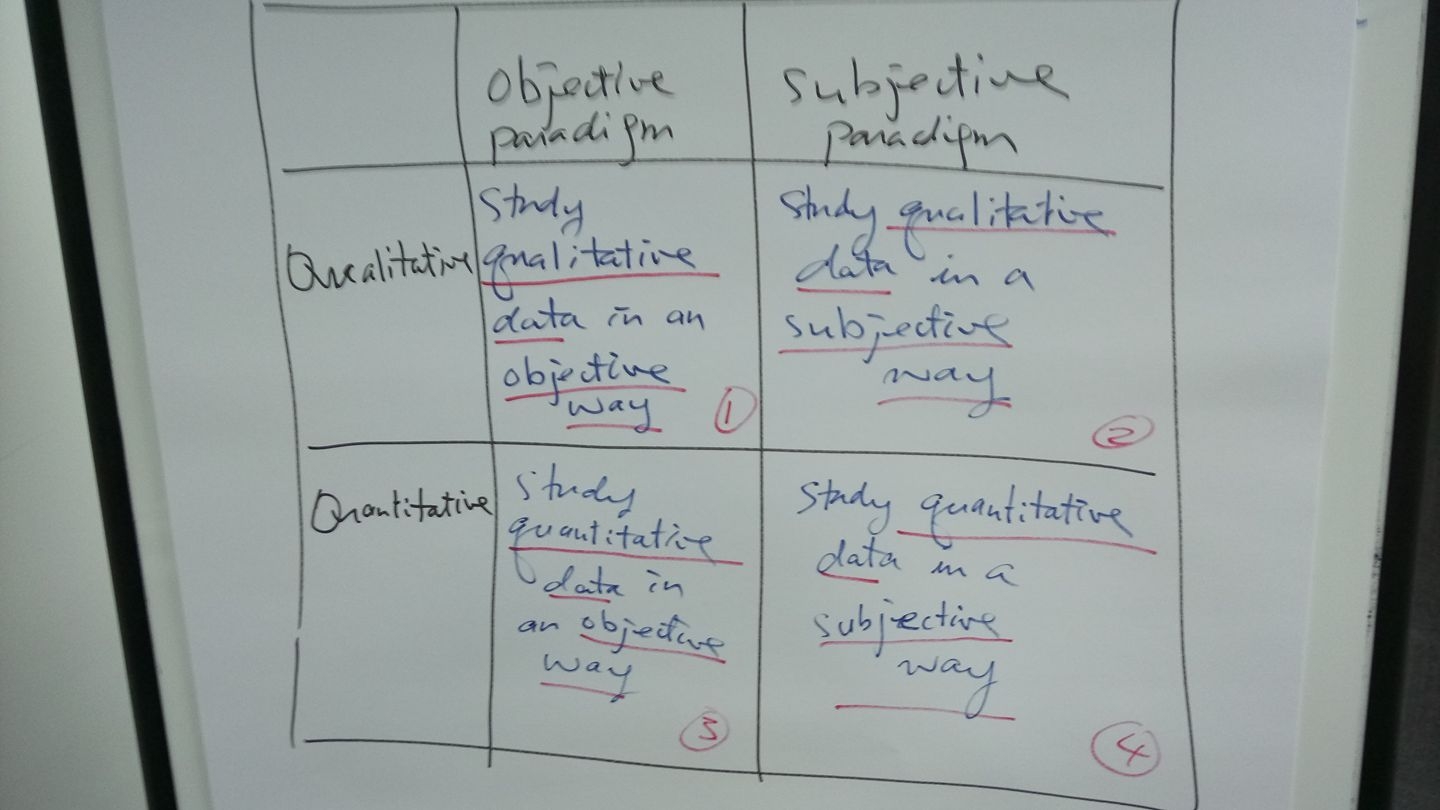 Objective
paradigm
Subjective
paradigm
Qualitative
Study
qualitative
data in an
objective
way
①
Study qualitative
data in a
subjective
way
②
Quantitative
Study
quantitative
data in
an objective
way
③
Study quantitative
data in a
subjective
way
④